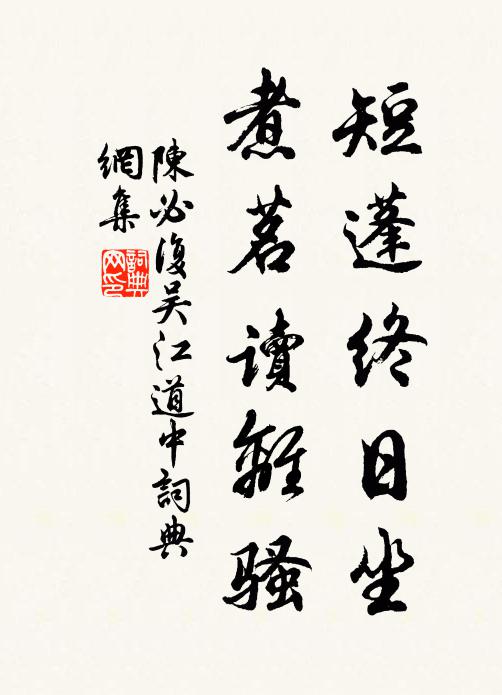 短蓬終日坐
煮茗讀離骚
陳必復吴江道中詞典
網集
詞典
网印